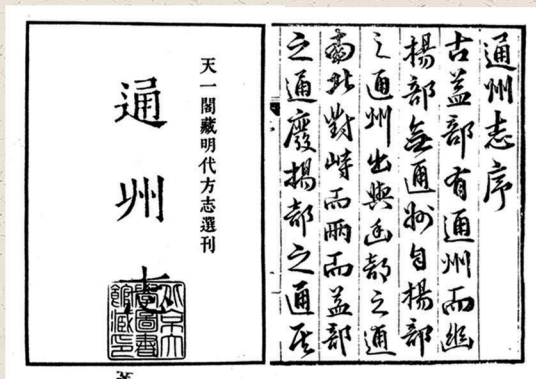 通州志序
古益部有通州而幽
揚部無通州自揚部
之通州出與幽部之通
南北對峙而兩而益部
之通廢揚部之通
天一閣藏明代方志選刊
通州志
北京大
學圖書
館藏印